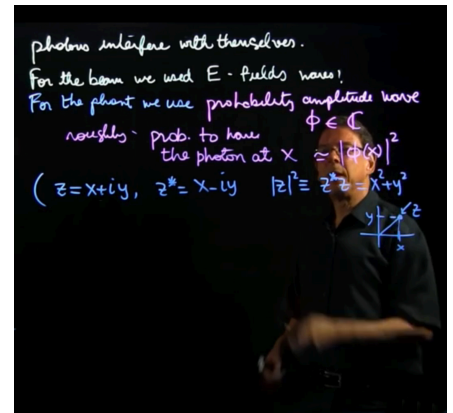 photons interfere with themselves.
For the beam we used E-fields waves!
For the phont we use probability amplitude wave
φ ∈ ℂ
roughly - prob. to have
the photon at x ≃ |φ(x)|²
( z = x+iy, z* = x-iy |z|² ≡ z*z = x²+y²
y z
x